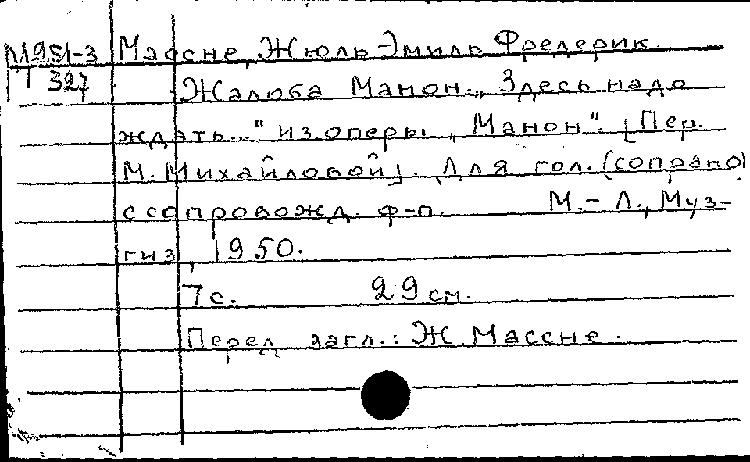 М951-3 Массне, Жюль-Эмиль Фредерик.
327
Жалоба Манон „Здесь надо
ждать..." из оперы „Манон". [Пер.
М. Михайловой]. Для гол. (сопрано)
с сопровожд. ф-п. М.-Л., Муз-
гиз, 1950.
7 с. 29 см.
Перед загл.: Ж. Массне.